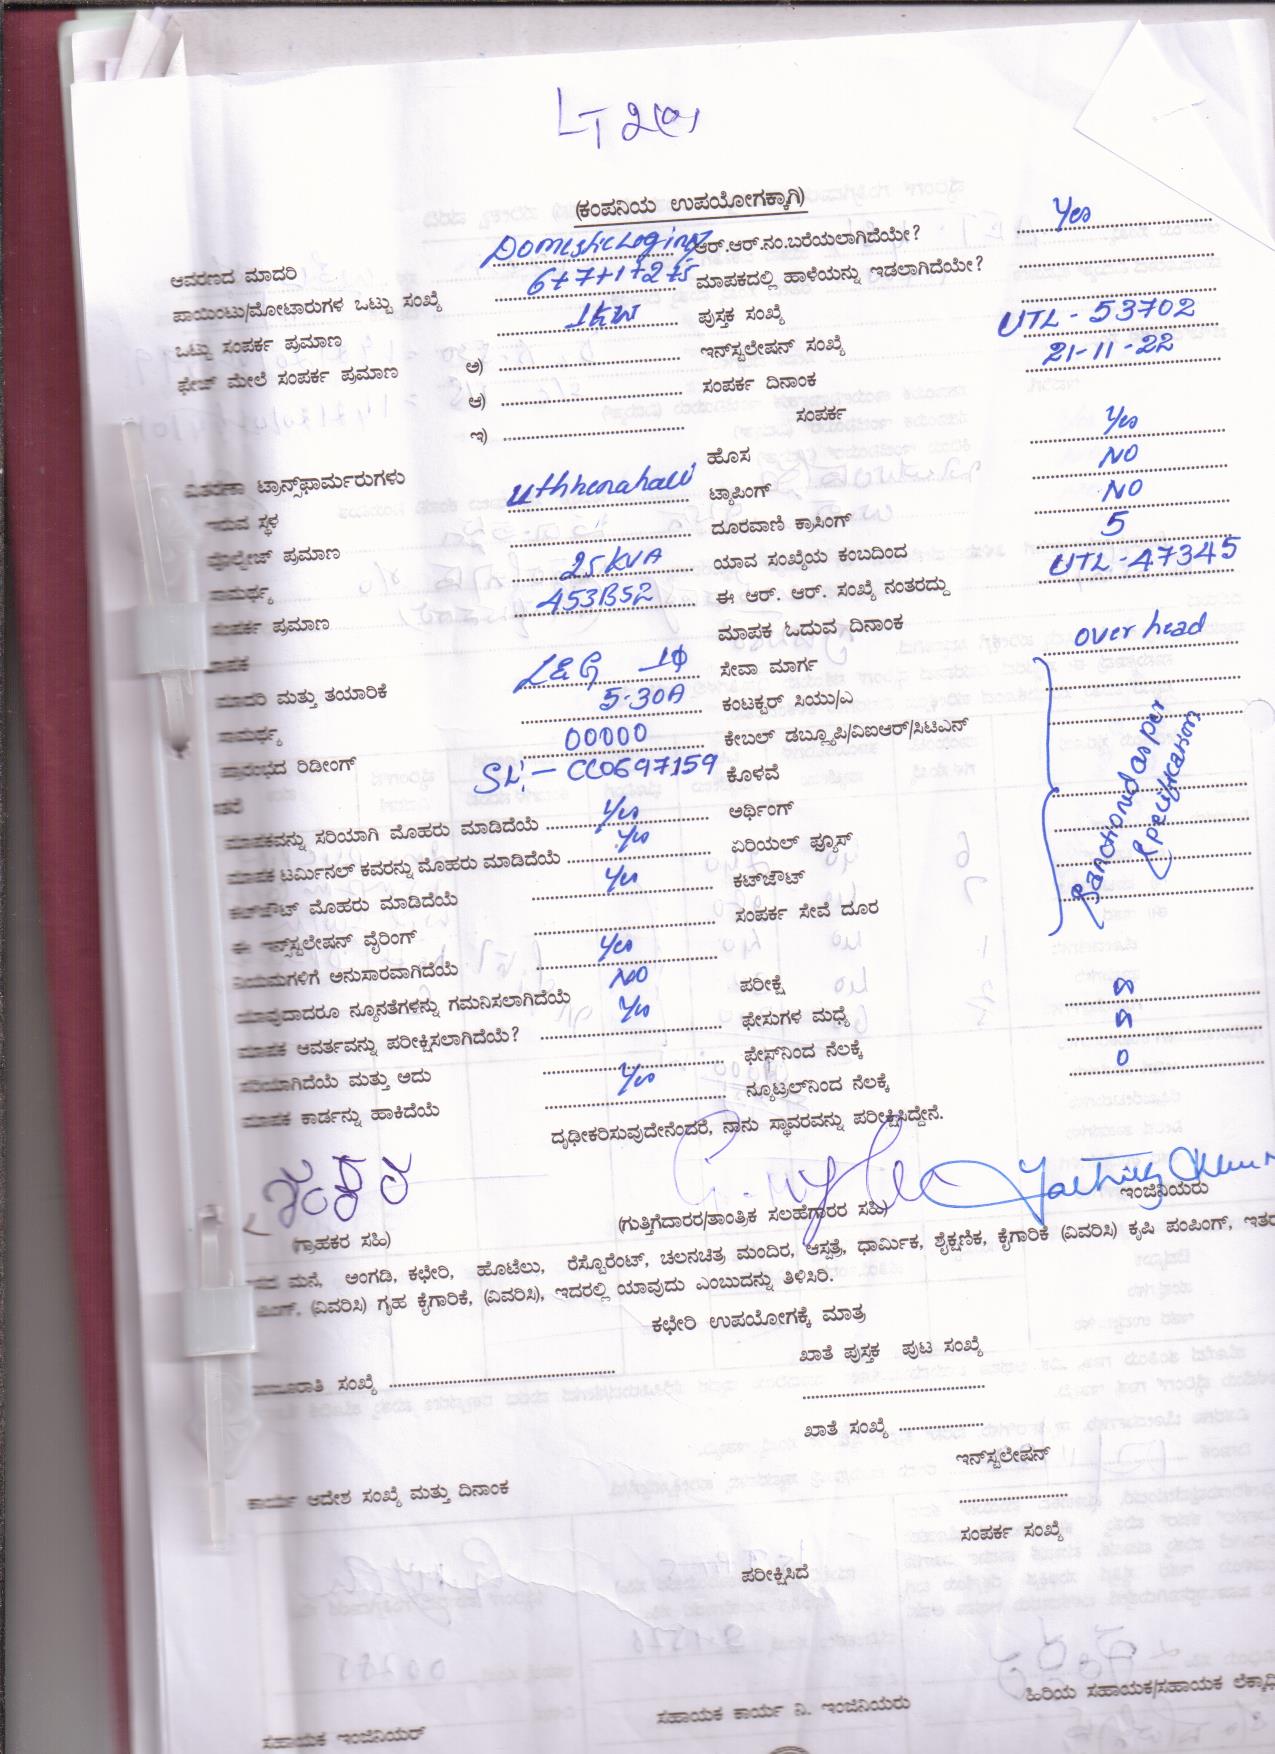 LT 2(a)
(ಕಂಪನಿಯ ಉಪಯೋಗಕ್ಕಾಗಿ)
ಆವರಣದ ಮಾದರಿ Domestic Loging ಆರ್.ಆರ್.ನಂ.ಬರೆಯಲಾಗಿದೆಯೇ? Yes
ಪಾಯಿಂಟು/ಮೋಟಾರುಗಳ ಒಟ್ಟು ಸಂಖ್ಯೆ 6+7+1+2+5 ಮಾಪಕದಲ್ಲಿ ಹಾಳೆಯನ್ನು ಇಡಲಾಗಿದೆಯೇ?
ಒಟ್ಟು ಸಂಪರ್ಕ ಪ್ರಮಾಣ 1KW ಪುಸ್ತಕ ಸಂಖ್ಯೆ
ಫೇಜ್ ಮೇಲೆ ಸಂಪರ್ಕ ಪ್ರಮಾಣ ಅ) ಇನ್‌ಸ್ಟಲೇಷನ್ ಸಂಖ್ಯೆ UTL - 53702
ಆ) ಸಂಪರ್ಕ ದಿನಾಂಕ 21-11-22
ಇ) ಸಂಪರ್ಕ
ವಿತರಣಾ ಟ್ರಾನ್ಸ್‌ಫಾರ್ಮರುಗಳು ಹೊಸ Yes
ಇರುವ ಸ್ಥಳ Uthhenahalli ಟ್ಯಾಪಿಂಗ್ NO
ವೋಲ್ಟೇಜ್ ಪ್ರಮಾಣ ದೂರವಾಣಿ ಕ್ರಾಸಿಂಗ್ NO
ಸಾಮರ್ಥ್ಯ 25KVA ಯಾವ ಸಂಖ್ಯೆಯ ಕಂಬದಿಂದ 5
ಸಂಪರ್ಕ ಪ್ರಮಾಣ 453B52 ಈ ಆರ್. ಆರ್. ಸಂಖ್ಯೆ ನಂತರದ್ದು UTL - 47345
ಮಾಪಕ ಮಾಪಕ ಓದುವ ದಿನಾಂಕ
ಮಾದರಿ ಮತ್ತು ತಯಾರಿಕೆ L&G 1Φ ಸೇವಾ ಮಾರ್ಗ over head
ಸಾಮರ್ಥ್ಯ 5-30A ಕಂಟಕ್ಟರ್ ಸಿಯು/ಎ
ಪ್ರಾರಂಭದ ರಿಡೀಂಗ್ 00000 ಕೇಬಲ್ ಡಬ್ಲ್ಯೂಪಿ/ವಿಐಆರ್/ಸಿಟಿಎನ್
SL! - CC0697159 ಕೊಳವೆ
Sanctioned as per Specification
ಮಾಪಕವನ್ನು ಸರಿಯಾಗಿ ಮೊಹರು ಮಾಡಿದೆಯೆ Yes ಅರ್ಥಿಂಗ್
ಮಾಪಕ ಟರ್ಮಿನಲ್ ಕವರನ್ನು ಮೊಹರು ಮಾಡಿದೆಯೆ Yes ಏರಿಯಲ್ ಫ್ಯೂಸ್
ಕಟ್‌ಔಟ್ ಮೊಹರು ಮಾಡಿದೆಯೆ Yes ಕಟ್‌ಔಟ್
ಈ ಇನ್ಸ್‌ಸ್ಟಲೇಷನ್ ವೈರಿಂಗ್ ಸಂಪರ್ಕ ಸೇವೆ ದೂರ
ನಿಯಮಗಳಿಗೆ ಅನುಸಾರವಾಗಿದೆಯೆ Yes
ಯಾವುದಾದರೂ ನ್ಯೂನತೆಗಳನ್ನು ಗಮನಿಸಲಾಗಿದೆಯೆ NO ಪರೀಕ್ಷೆ
ಮಾಪಕ ಆವರ್ತವನ್ನು ಪರೀಕ್ಷಿಸಲಾಗಿದೆಯೆ? Yes ಫೇಸುಗಳ ಮಧ್ಯೆ
ಸರಿಯಾಗಿದೆಯೆ ಮತ್ತು ಅದು ಫೇಸ್‌ನಿಂದ ನೆಲಕ್ಕೆ
ಮಾಪಕ ಕಾರ್ಡನ್ನು ಹಾಕಿದೆಯೆ Yes ನ್ಯೂಟ್ರಲ್‌ನಿಂದ ನೆಲಕ್ಕೆ 0
ದೃಢೀಕರಿಸುವುದೇನೆಂದರೆ, ನಾನು ಸ್ಥಾವರವನ್ನು ಪರೀಕ್ಷಿಸಿದ್ದೇನೆ.
(ಗ್ರಾಹಕರ ಸಹಿ) (ಗುತ್ತಿಗೆದಾರರ/ತಾಂತ್ರಿಕ ಸಲಹೆಗಾರರ ಸಹಿ) ಇಂಜಿನಿಯರು
ಮನೆ, ಅಂಗಡಿ, ಕಛೇರಿ, ಹೊಟೆಲು, ರೆಸ್ಟೊರೆಂಟ್, ಚಲನಚಿತ್ರ ಮಂದಿರ, ಆಸ್ಪತ್ರೆ, ಧಾರ್ಮಿಕ, ಶೈಕ್ಷಣಿಕ, ಕೈಗಾರಿಕೆ (ವಿವರಿಸಿ) ಕೃಷಿ ಪಂಪಿಂಗ್, ಇತರ
(ವಿವರಿಸಿ) ಗೃಹ ಕೈಗಾರಿಕೆ, (ವಿವರಿಸಿ), ಇದರಲ್ಲಿ ಯಾವುದು ಎಂಬುದನ್ನು ತಿಳಿಸಿರಿ.
ಕಛೇರಿ ಉಪಯೋಗಕ್ಕೆ ಮಾತ್ರ
ಸಂಖ್ಯೆ ಖಾತೆ ಪುಸ್ತಕ ಪುಟ ಸಂಖ್ಯೆ
ಖಾತೆ ಸಂಖ್ಯೆ
ಇನ್‌ಸ್ಟಲೇಷನ್
ಕಾರ್ಯ ಆದೇಶ ಸಂಖ್ಯೆ ಮತ್ತು ದಿನಾಂಕ
ಸಂಪರ್ಕ ಸಂಖ್ಯೆ
ಪರೀಕ್ಷಿಸಿದೆ
ಸಹಾಯಕ ಇಂಜಿನಿಯರ್ ಸಹಾಯಕ ಕಾರ್ಯ ನಿ. ಇಂಜಿನಿಯರು ಹಿರಿಯ ಸಹಾಯಕ/ಸಹಾಯಕ